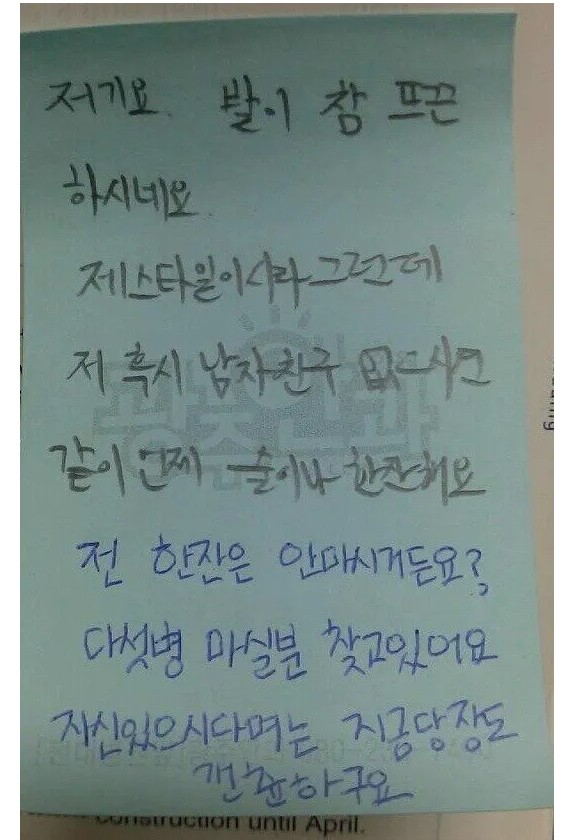 저기요. 발이 참 뜨끈
하시네요.
제스타일이시라그런데
저 혹시 남자친구 없으시면
같이 언제 술이나 한잔해요
전 한잔은 안마시거든요?
다섯병 마실분 찾고있어요
자신있으시다며는 지금당장도
괜찮하구요
Construction until April.